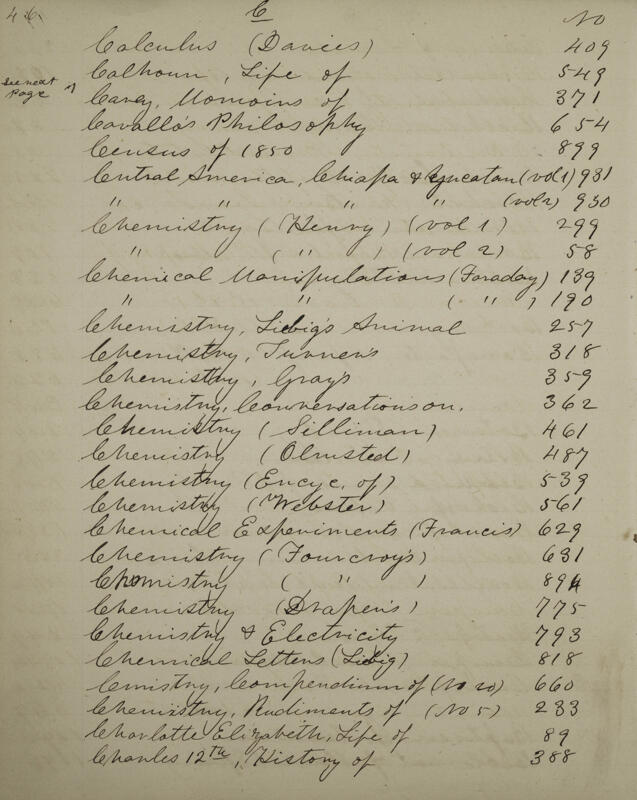 46. C No
Calculus (Davies) 409
Calhoun, Life of 549
See next
Page
Carey, Momoirs of 371
Cavallo's Philosophy 654
Census of 1850 899
Central America, Chiapa & Yucatan (vol 1) 931
" " " " (vol 2) 930
Chemistry (Henry) (vol 1) 299
" ( " ) (vol 2) 58
Chemical Manipulations (Faraday) 139
" " ( " ) 190
Chemistry, Liebig's Animal 257
Chemistry, Turner's 318
Chemistry, Gray's 359
Chemistry, Conversations on. 362
Chemistry (Silliman) 461
Chemistry (Olmsted) 487
Chemistry (Encyc. of) 539
Chemistry (Webster) 561
Chemical Experiments (Francis) 629
Chemistry (Fourcroy's) 631
Chemistry ( " ) 894
Chemistry (Draper's) 775
Chemistry & Electricity 793
Chemical Letters (Liebig) 818
Cemistry, Compendium of (No 20) 660
Chemistry, Rudiments of (No 5) 233
Charlotte Elizabeth, Life of 89
Charles 12th, History of 388